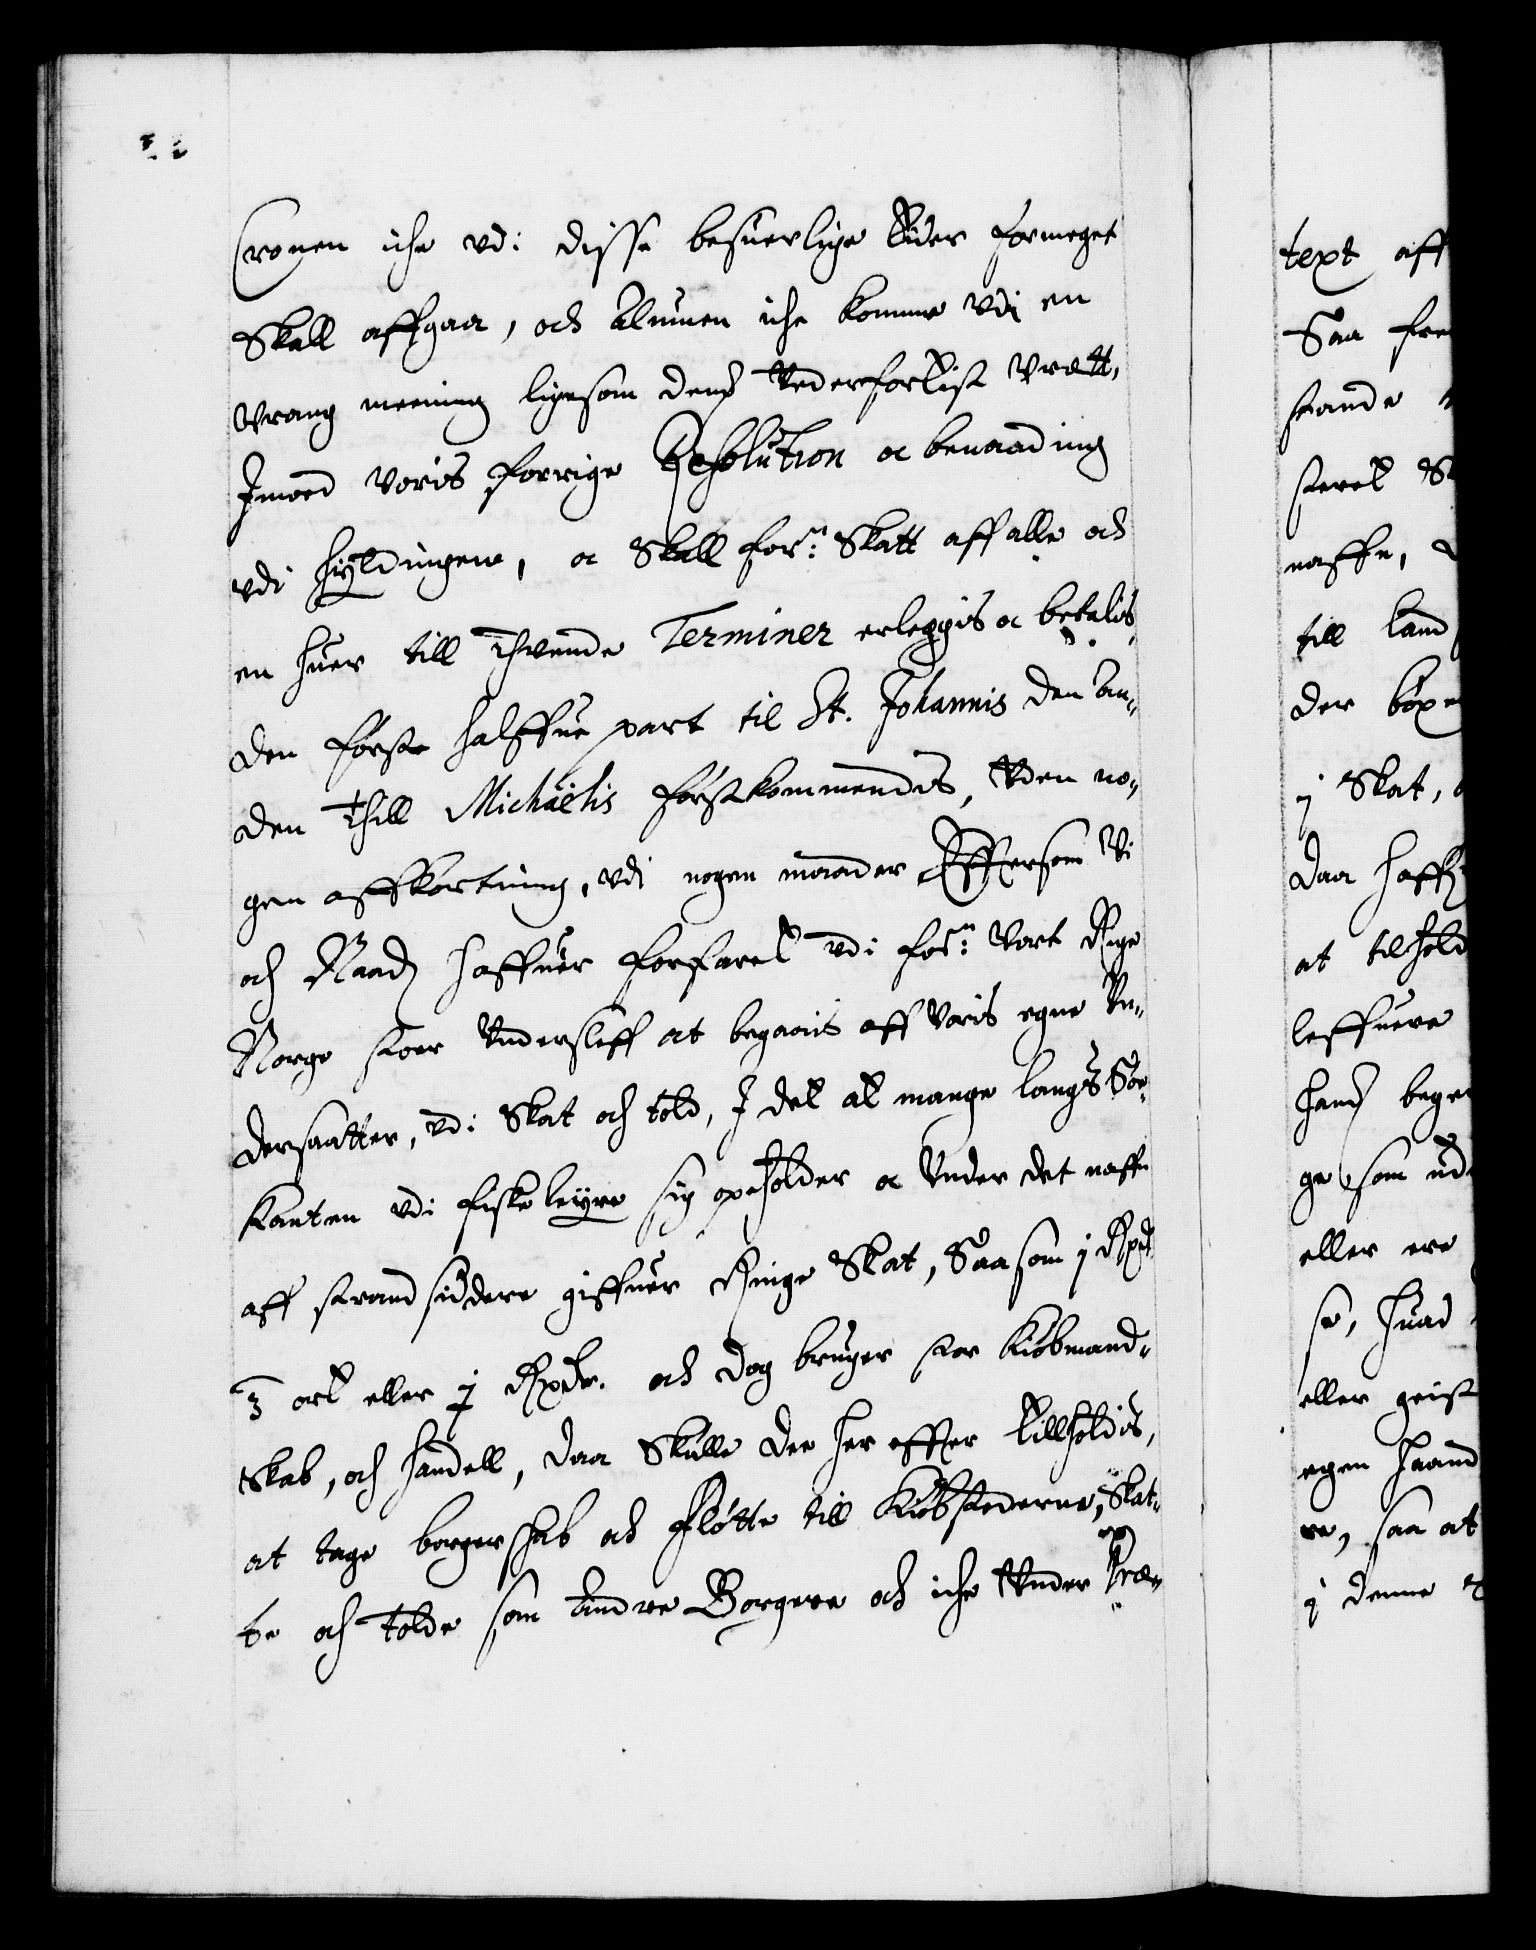 Cronen iche vdi disse besuerlige Tider formeget
Skall affgaa, och Almuen iche komme vdi en
Vrang meening ligesom dennem Vederfortist Vrett,
Imoed Voris forrige Resolution oc benaading
vdi hÿldingen, oc Skall forn: Skatt aff alle och
en huer till tuende Terminer erleggis oc betalis,
den første halffue part til St. Johannis den an-
den thill Michaëlis førstkommendis, Vden no-
gen affkortning, vdi nogen maader Effersom Vi
och Naadj haffuer forfaret vdi forn: Vort Rige
Norge stoer Vndersleff at begaais aff Voris egne Vn-
dersaatter, vdi Skat och told, I det at mange langs Søe
Kanten vdi fiskeleÿre sig opeholder oc Vnder det naffn
aff strandsiddere giffuer Ringe Skat, Saasom j Rixd.
3 ort eller j Rixdr. och dog bruger stor Kiøbmand-
Skab, och handell, daa Skulle de her effter tillholdis,
at tage borgerskab och Fløtte till Kiøbstederne, Skat-
te och Tolde som Andre Borgere och iche Vnder Præ-
text aff
Saa fre
stande
steret
naffn,
till land
der
j Skat,
daa haff
at tilhold
leffuere
hand begie
ge som ud
eller ere
se, huad
eller geist
egen haand
re, saa at
j denne